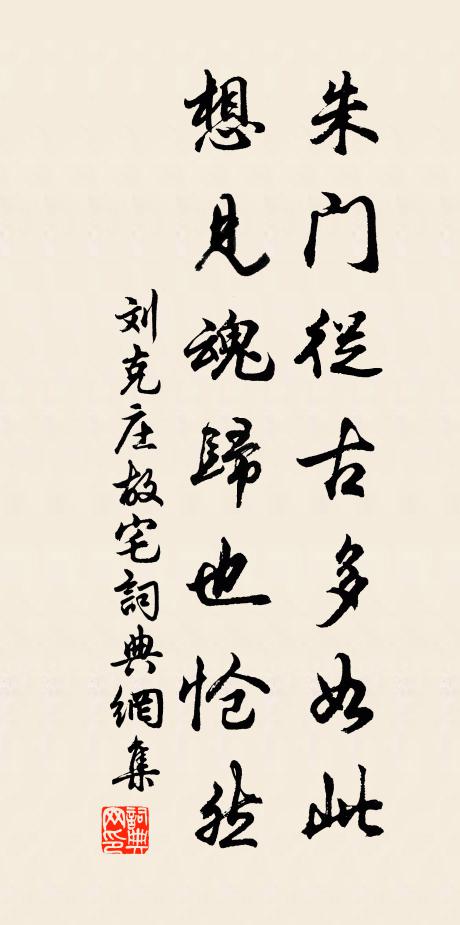 朱门從古多如此
想見魂歸也怆然
刘克庄故宅詞典網集
詞典网印